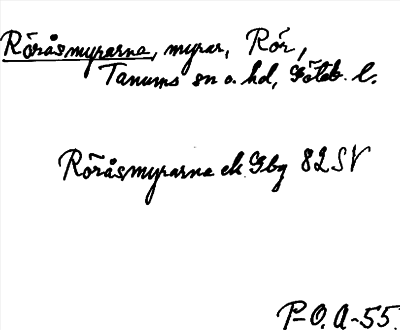 Röråsmyrarna, myrar, Rör,
Tanums sn o. hd, Göteb. l.
Röråsmyrarna ek Gbg 82SV
P-O. A-55.